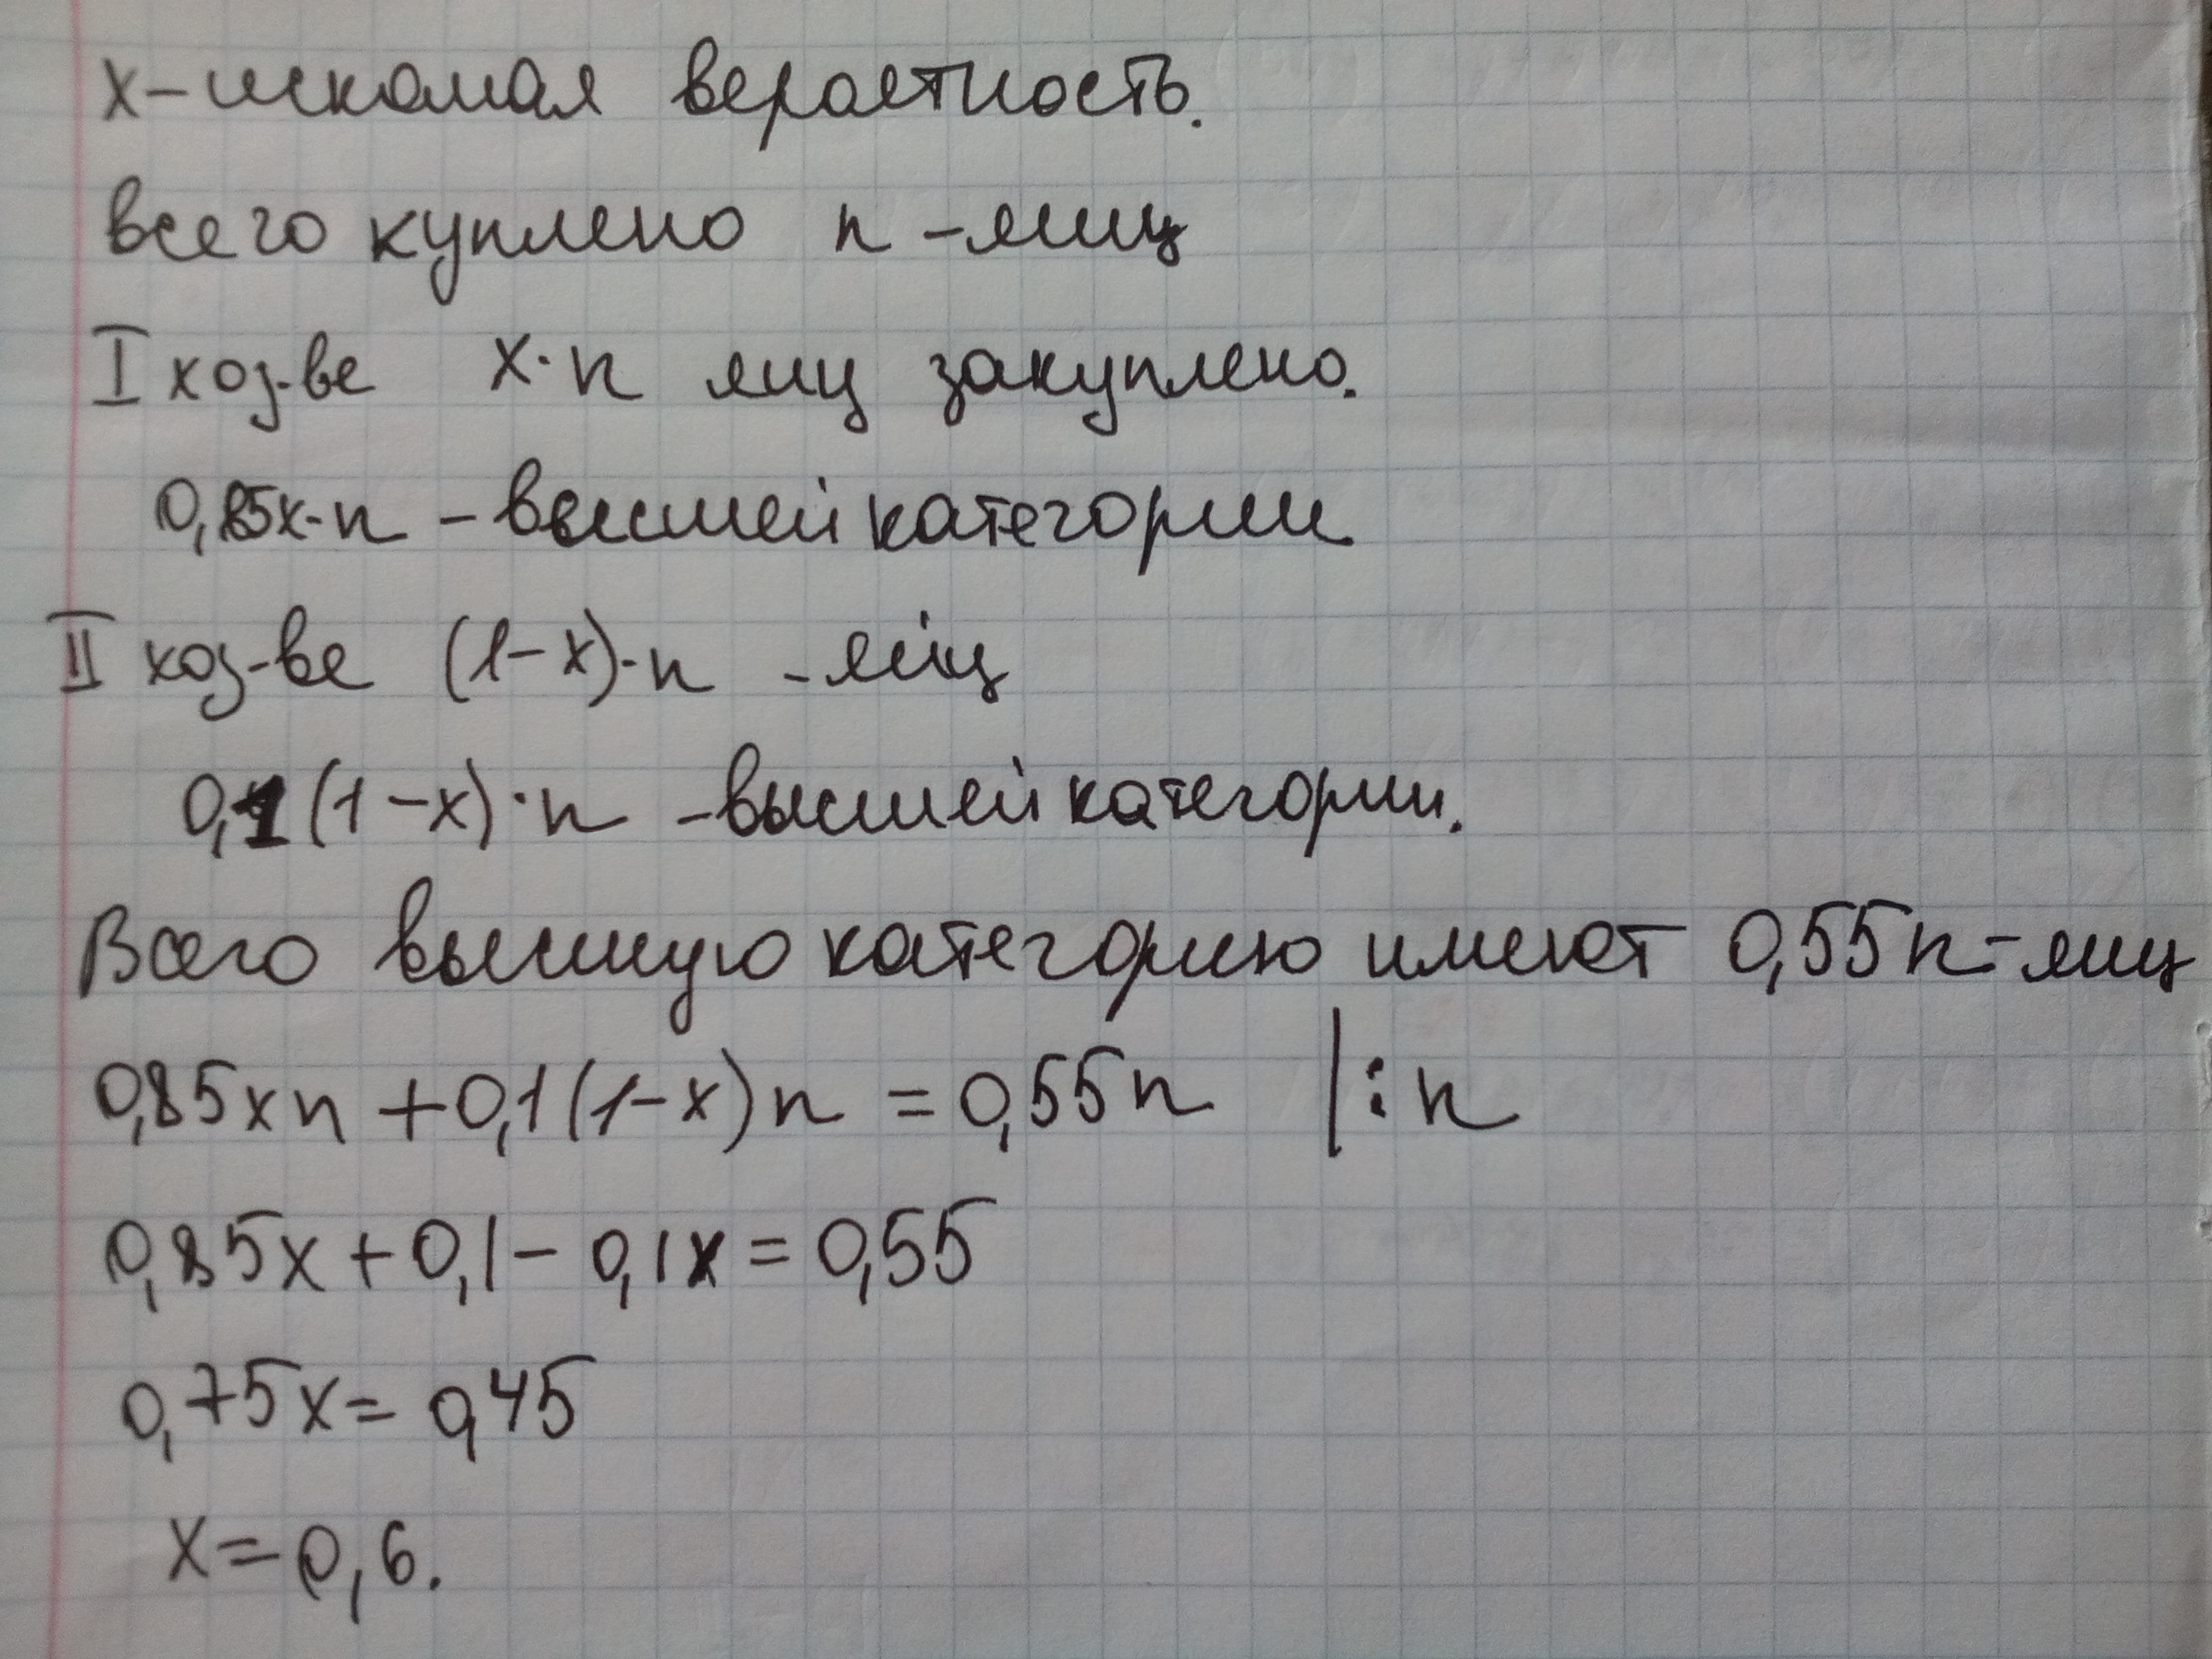 x - искомая вероятность.
всего куплено n - яиц
I хоз-ве x·n яиц закуплено.
0,85x·n - высшей категории
II хоз-ве (1-x)·n - яиц
0,1(1-x)·n - высшей категории.
Всего высшую категорию имеют 0,55n - яиц
0,85xn + 0,1(1-x)n = 0,55n |:n
0,85x + 0,1 - 0,1x = 0,55
0,75x = 0,45
x = 0,6.